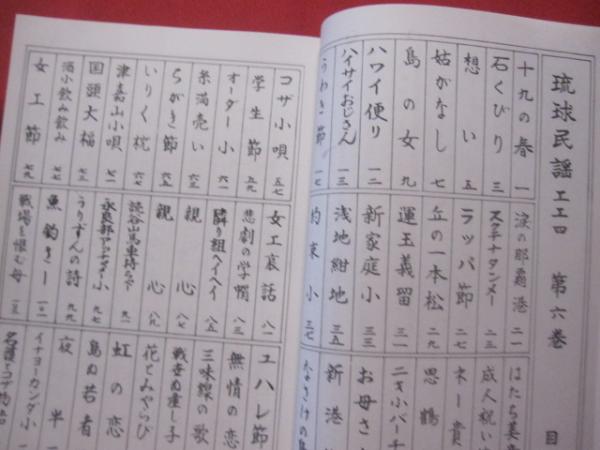 琉球民謡工工四 第六巻
目
十九の春 一
石くびり 三
想い 五
姑がなし 七
島の女 九
ハワイ便り 一一
ハイサイおじさん 一三
うわき節 一七
涙の那覇港 二一
スクチナタンメー 二三
ラッパ節 二七
丘の一本松 二九
運玉義留 三一
新家庭小 三三
浅地紺地 三五
約束小 三七
はたら美
成人祝い
ネー貴
思鶴
ニーキバーチ
お母さ
新港
コザ小唄 五七
学生節 五九
オーダー小 六一
糸満売い 六三
らがき節 六五
いりく枕 六七
津嘉山小唄 七一
国頭大福 七五
酒小飲み飲み 七七
女工節 七九
女工哀話 八一
悲劇の学帽 八三
隣り組ヘイヘイ 八五
親心 八七
親心 八九
読谷山馬車持ちャー 九一
永良部アッチャメー小 九五
うりずんの詩 九七
魚釣やー 一〇一
戦場を恨む母
ユハレ節
無情の恋
三味線の歌
戦世ぬ産し子
花とみやらび
虹の恋
島ぬ若者
夜半
イナヨーカンダ小